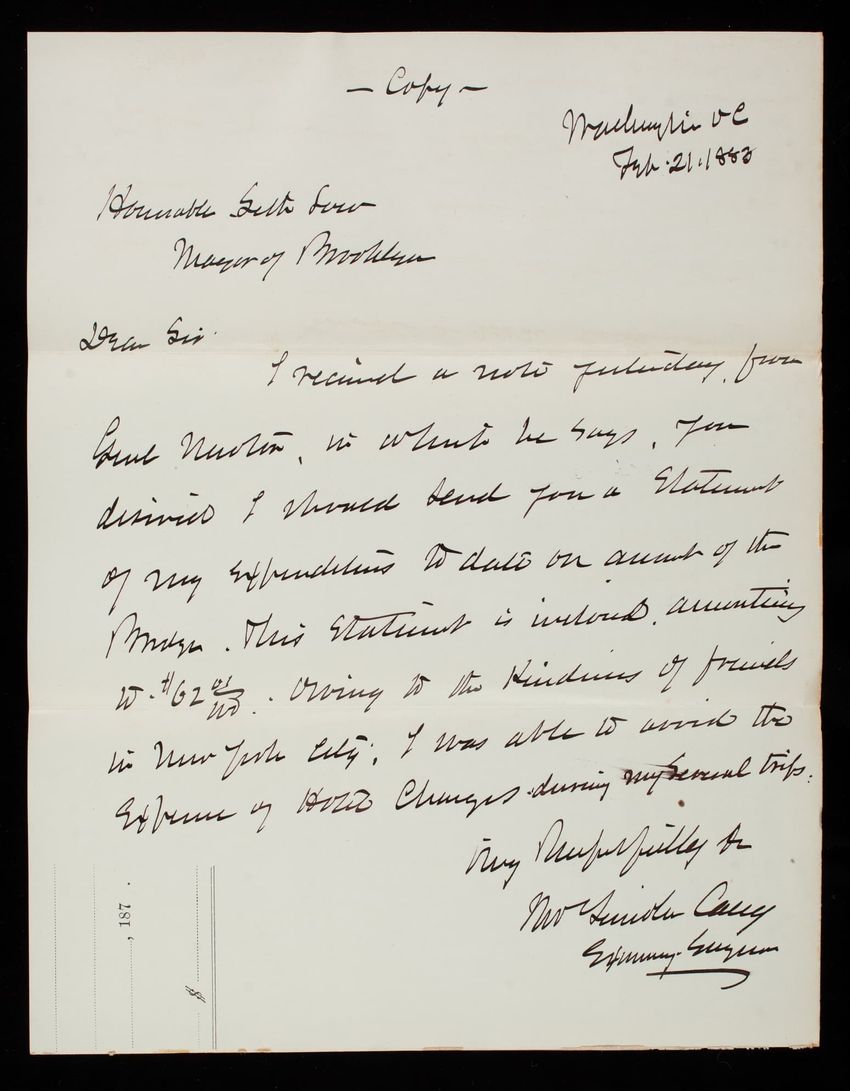 — Copy —
Washington DC
Feb. 21. 1883
Honorable Seth Low
Mayor of Brooklyn
Dear Sir
I received a note yesterday, from
Genl Newton, in which he says, you
desired I should send you a Statement
of my Expenditures to date on account of the
Bridge. This Statement is inclosed, amounting
to $62 /100. Owing to the Kindness of friends
in New York City, I was able to avoid the
Expense of Hotel Charges during my several trips.
Very Respectfully &c
Thos Lincoln Casey
Engineer
, 187 .
$